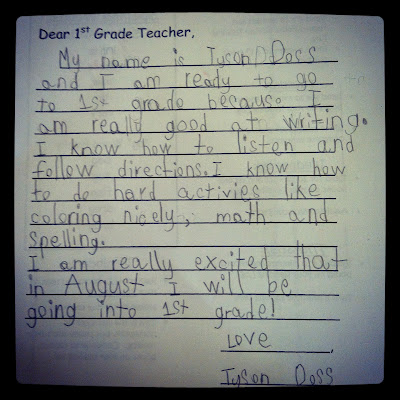 Dear 1st Grade Teacher,
My name is Tyson D Doss
and I am ready to go
to 1st grade because I
am really good at writing.
I know how to listen and
follow directions. I know how
to do hard activies like
coloring nicely, math and
spelling.
I am really excited that
in August I will be
going into 1st grade!
Love,
Tyson Doss